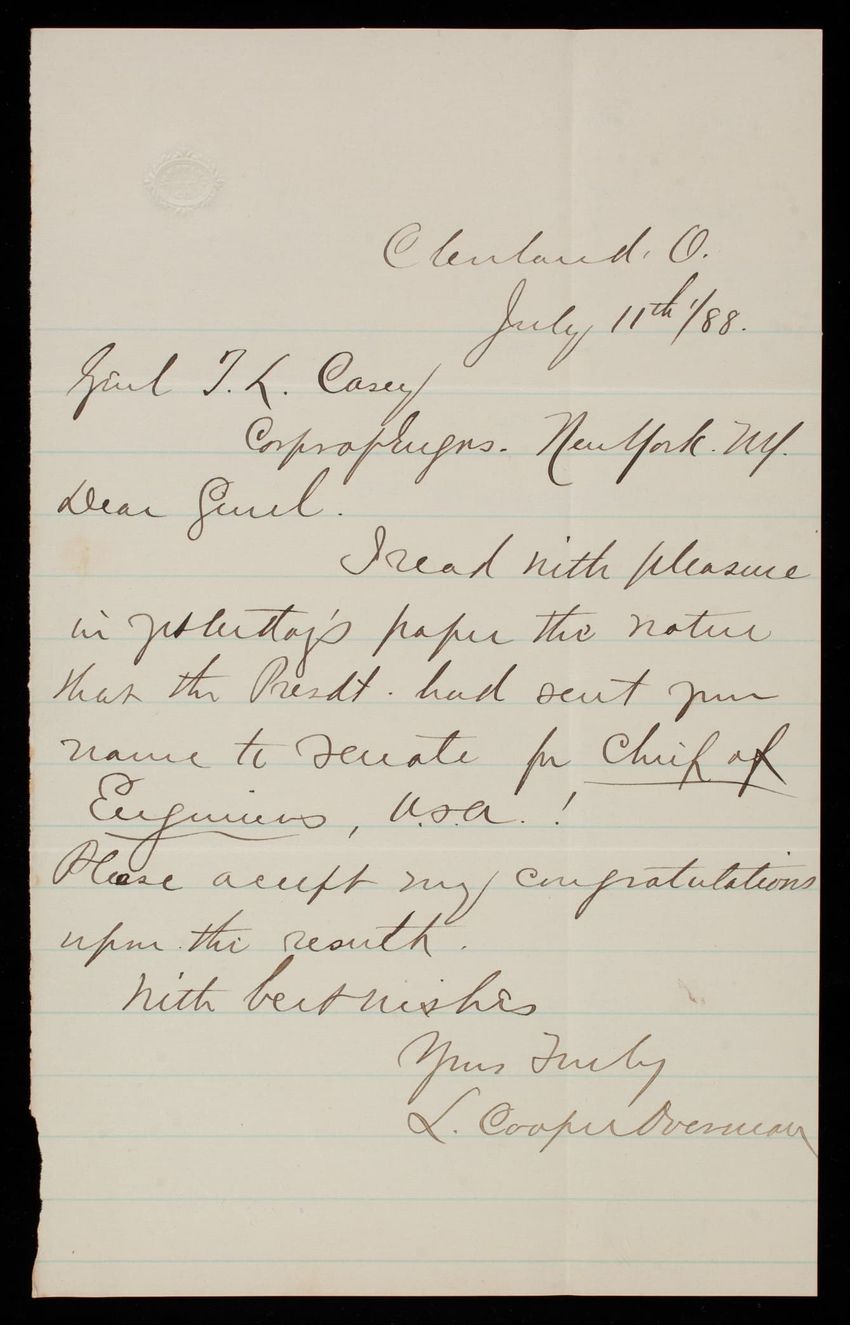 Cleveland, O.
July 11th /88.
Genl T. L. Casey
Corps of Engrs. New York. NY.
Dear Genl.
I read with pleasure
in yesterday's paper the notice
that the Presdt. had sent your
name to Senate for Chief of
Engineers, U.S.A. !
Please accept my congratulations
upon the result.
With best wishes
Yours Truly
L. Cooper Overman